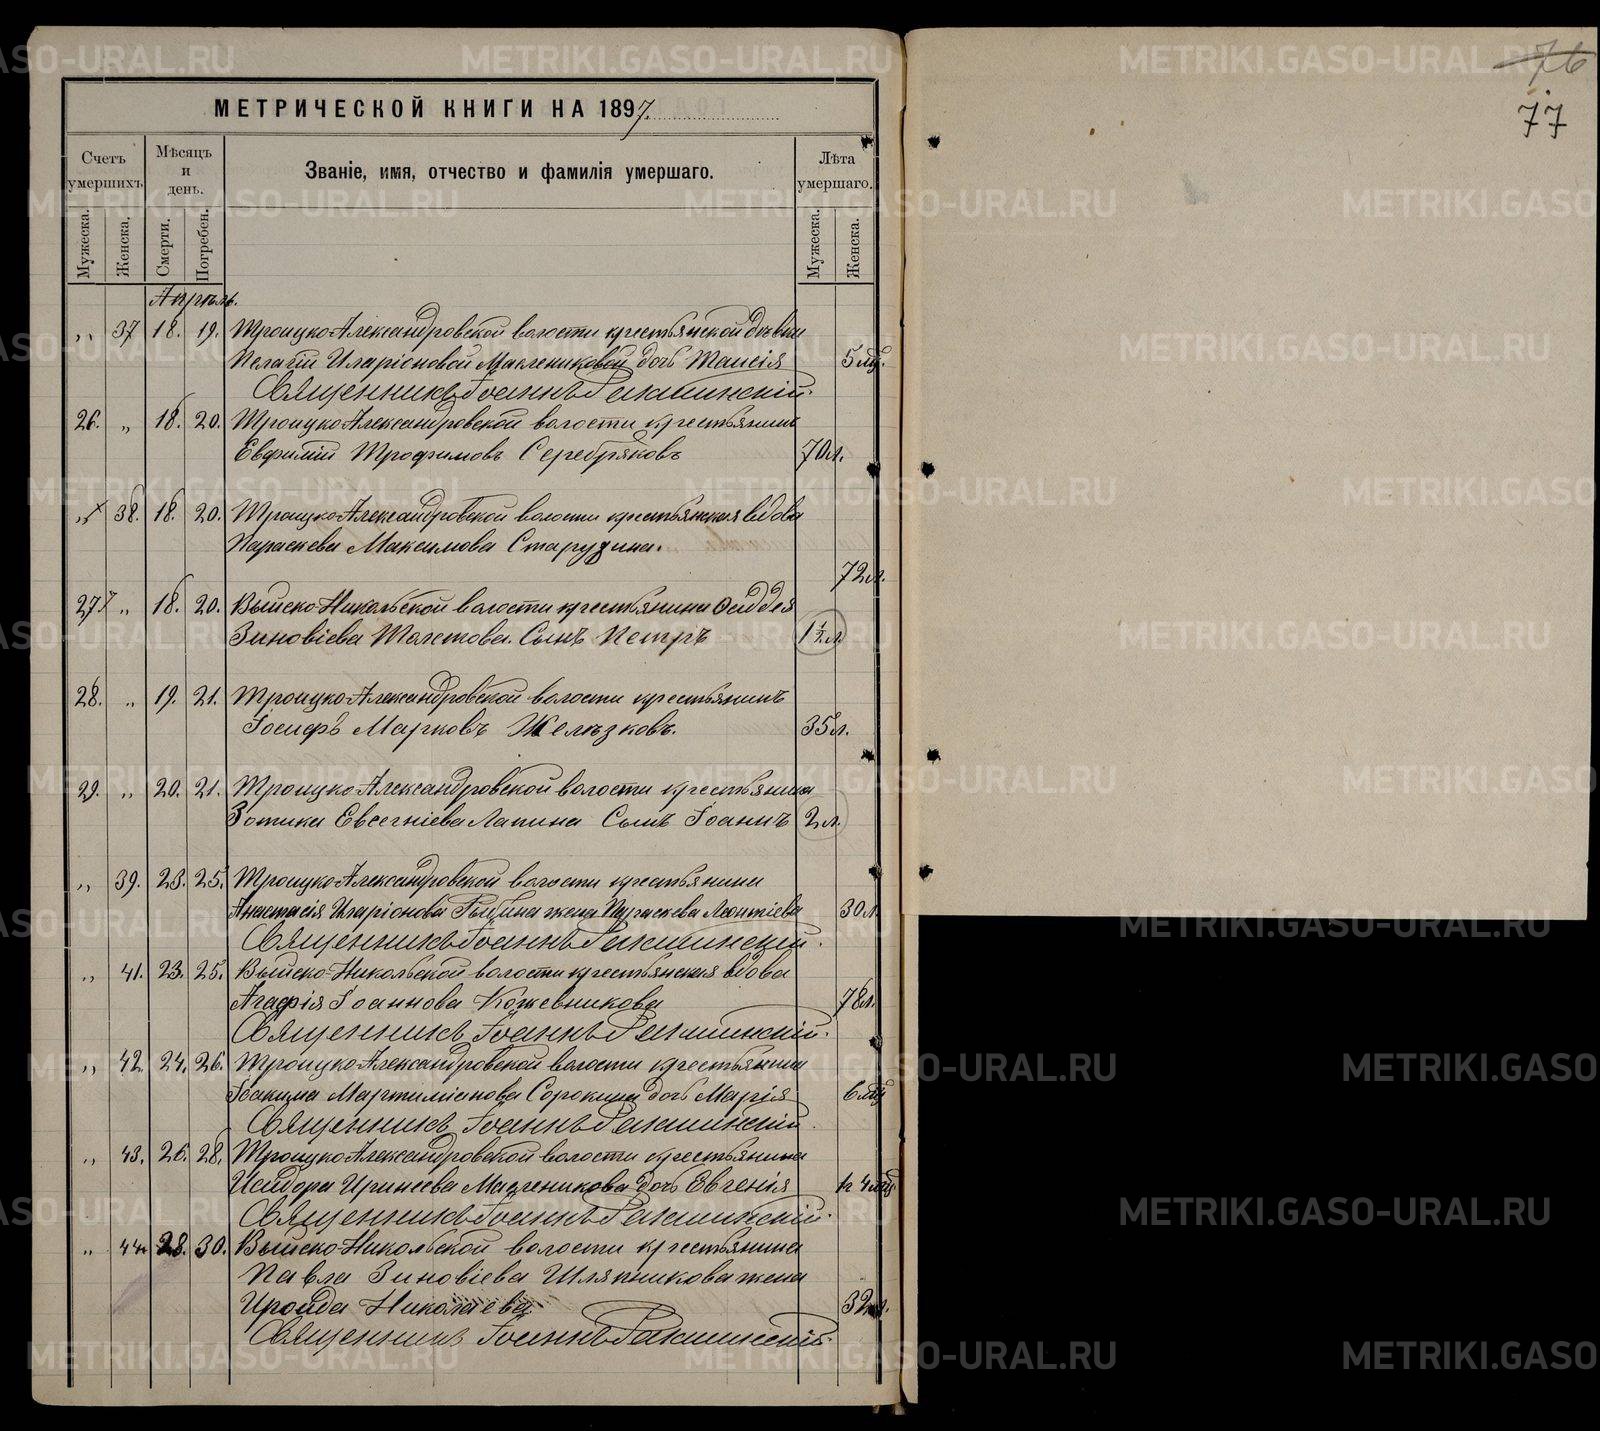 76
77
МЕТРИЧЕСКОЙ КНИГИ НА 1897.
Счетъ умершихъ.
Мѣсяцъ и день.
Званіе, имя, отчество и фамилія умершаго.
Лѣта умершаго.
Мужеска. Женска. Смерти. Погребен. Мужеска. Женска.
Апрѣль.
„ 37 18. 19. Троицко-Александровской волости крестьянской дѣвки
Пелагіи Иларіоновой Маслениковой дочь Таисія 5 мц.
Священникъ Іоаннъ
26. „ 18. 20. Троицко-Александровской волости крестьянинъ
Евфимій Трофимовъ Серебряковъ 70 л.
„ 38. 18. 20. Троицко-Александровской волости крестьянская вдова
Параскева Максимова Старузина. 72 л.
27 „ 18. 20. Выйско-Никольской волости крестьянина Фаддея
Зиновіева Толстова. Сынъ Петръ 1 1/2 л
28. „ 19. 21. Троицко-Александровской волости крестьянинъ
Іосифъ Марковъ Желѣзковъ. 35 л.
29. „ 20. 21. Троицко-Александровской волости крестьянина
Зотика Евсегніева Лапина Сынъ Іоаннъ 2 л.
„ 39. 23. 25. Троицко-Александровской волости крестьянина
Анастасія Иларіонова жена Параскева Леонтіева 30 л.
Священникъ Іоаннъ
„ 41. 23. 25. Выйско-Никольской волости крестьянская вдова
Агафія Іоаннова Кожевникова 78 л.
Священникъ Іоаннъ
„ 42. 24. 26. Троицко-Александровской волости крестьянина
Іоакима Мартиміанова Сорокина дочь Марія 6 мц
Священникъ Іоаннъ
„ 43. 26. 28. Троицко-Александровской волости крестьянина
Исидора Иринеева Масленикова дочь Евгенія 4 мц
Священникъ Іоаннъ
„ 44. 28. 30. Выйско-Никольской волости крестьянина
Павла Зиновіева Шляпникова жена
Ироида Николаева 32 л.
Священникъ Іоаннъ
METRIKI.GASO-URAL.RU